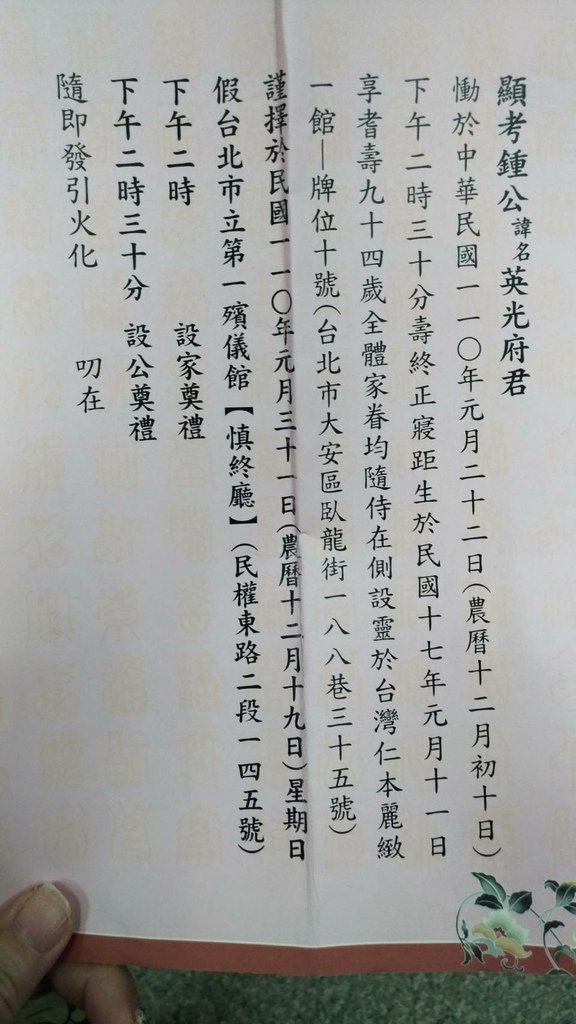 顯考鍾公諱名英光府君
慟於中華民國一一〇年元月二十二日(農曆十二月初十日)
下午二時三十分壽終正寢距生於民國十七年元月十一日
享耆壽九十四歲全體家眷均隨侍在側設靈於台灣仁本麗緻
一館—牌位十號(台北市大安區臥龍街一八八巷三十五號)
謹擇於民國一一〇年元月三十一日(農曆十二月十九日)星期日
假台北市立第一殯儀館【慎終廳】(民權東路二段一四五號)
下午二時 設家奠禮
下午二時三十分 設公奠禮
隨即發引火化 叨在